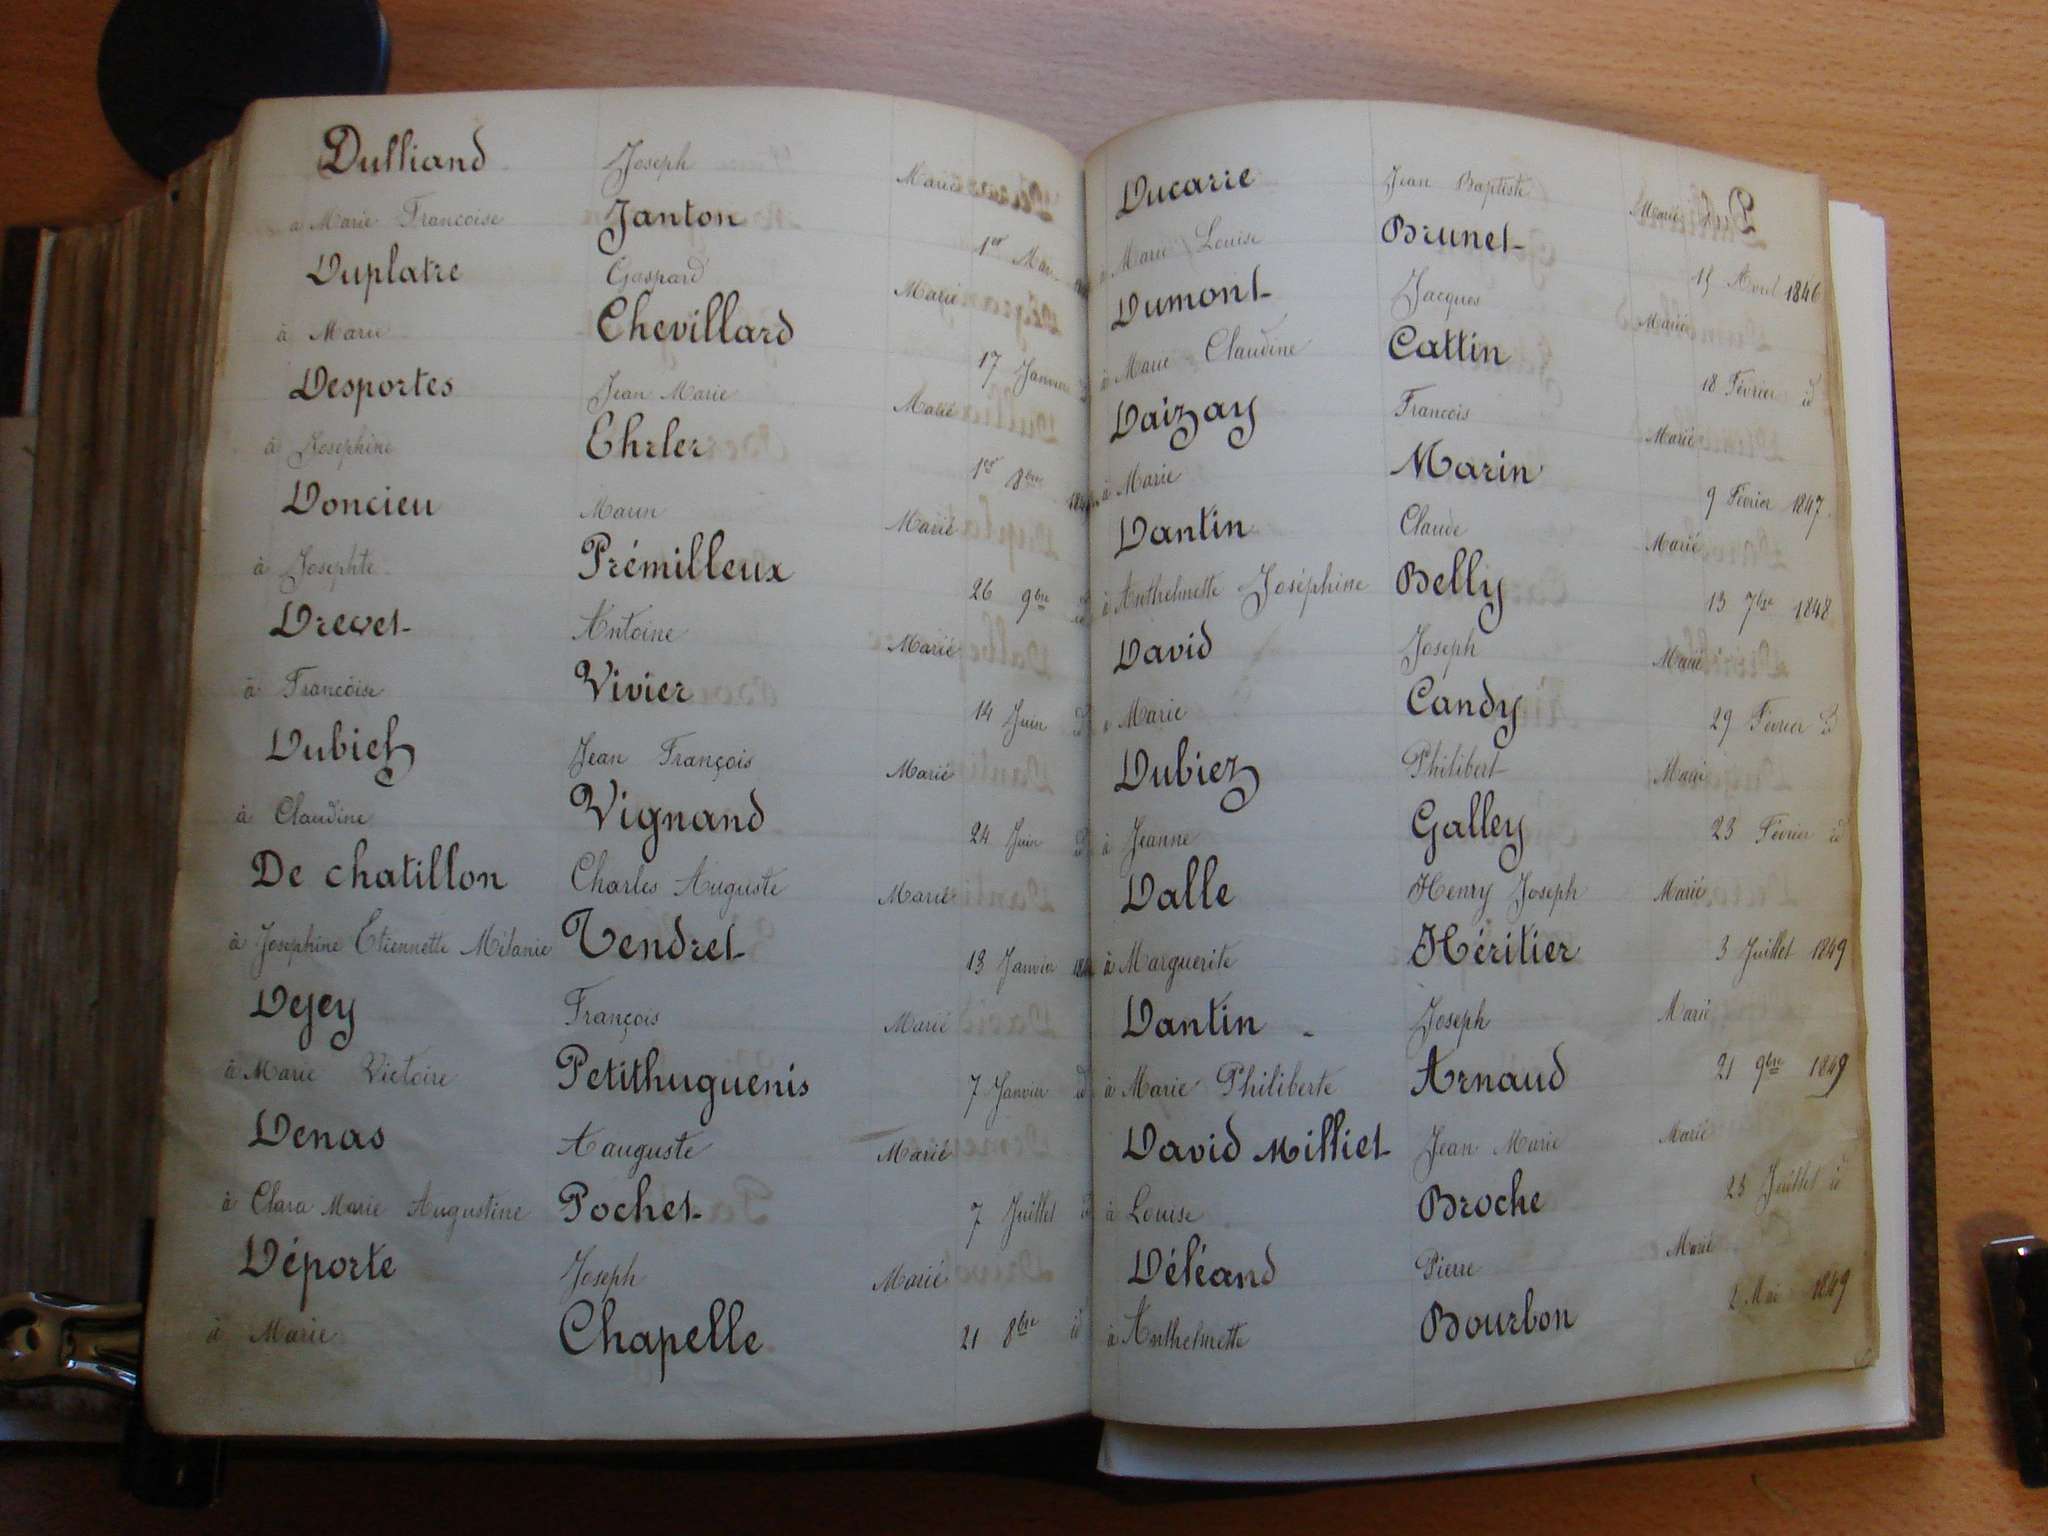 Dulliand Joseph Marié
à Marie Francoise Janton 1er
Duplatre Gaspard Marié
à Marie Chevillard 17 Janvier
Desportes Jean Marie Marié
à Josephine Ehrler 1er 8bre
Doncieu Marin Marié
à Josephte Prémilleux 26 9bre id
Drevet Antoine Marié
à Francoise Vivier 14 Juin id
Dubieh Jean François Marié
à Claudine Vignand 24 Juin id
De chatillon Charles Auguste Marié
à Josephine Etiennette Mélanie Tendret 13 Janvier
Dejey François Marié
à Marie Victoire Petithuguenis 7 Janvier id
Denas Aauguste Marié
à Clara Marie Augustine Pochet 7 Juillet id
Déporte Joseph Marié
à Marie Chapelle 21 8bre id
Ducarre Jean Baptiste Marié
à Marie Louise Brunet 15 Avril 1846
Dumont Jacques Marié
à Marie Claudine Cattin 18 Février id
Daizay Francois Marié
à Marie Marin 9 Février 1847
Dantin Claude Marié
à Anthelmette Joséphine Belly 13 7bre 1848
David Joseph Marié
à Marie Candy 29 Février id
Dubiez Philibert Marié
à Jeanne Galley 23 Février id
Dalle Henry Joseph Marié
à Marguerite Héritier 3 Juillet 1849
Dantin Joseph Marié
à Marie Philiberte Arnaud 21 9bre 1849
David Milliet Jean Marie Marié
à Louise Broche 23 Juillet id
Déléand Pierre Marié
à Anthelmette Bourbon 2 Mai 1849